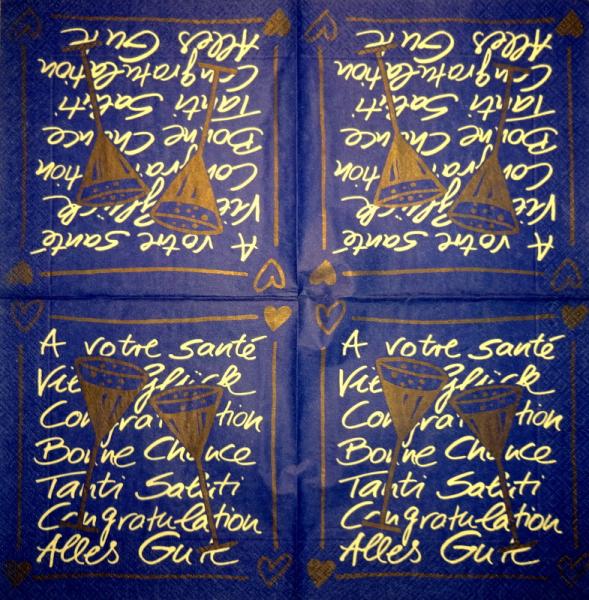 A votre santé
Viel Glück
Congratulation
Bonne Chance
Tanti Saluti
Congratulation
Alles Gute
A votre santé
Viel Glück
Congratulation
Bonne Chance
Tanti Saluti
Congratulation
Alles Gute
A votre santé
Viel Glück
Congratulation
Bonne Chance
Tanti Saluti
Congratulation
Alles Gute
A votre santé
Viel Glück
Congratulation
Bonne Chance
Tanti Saluti
Congratulation
Alles Gute